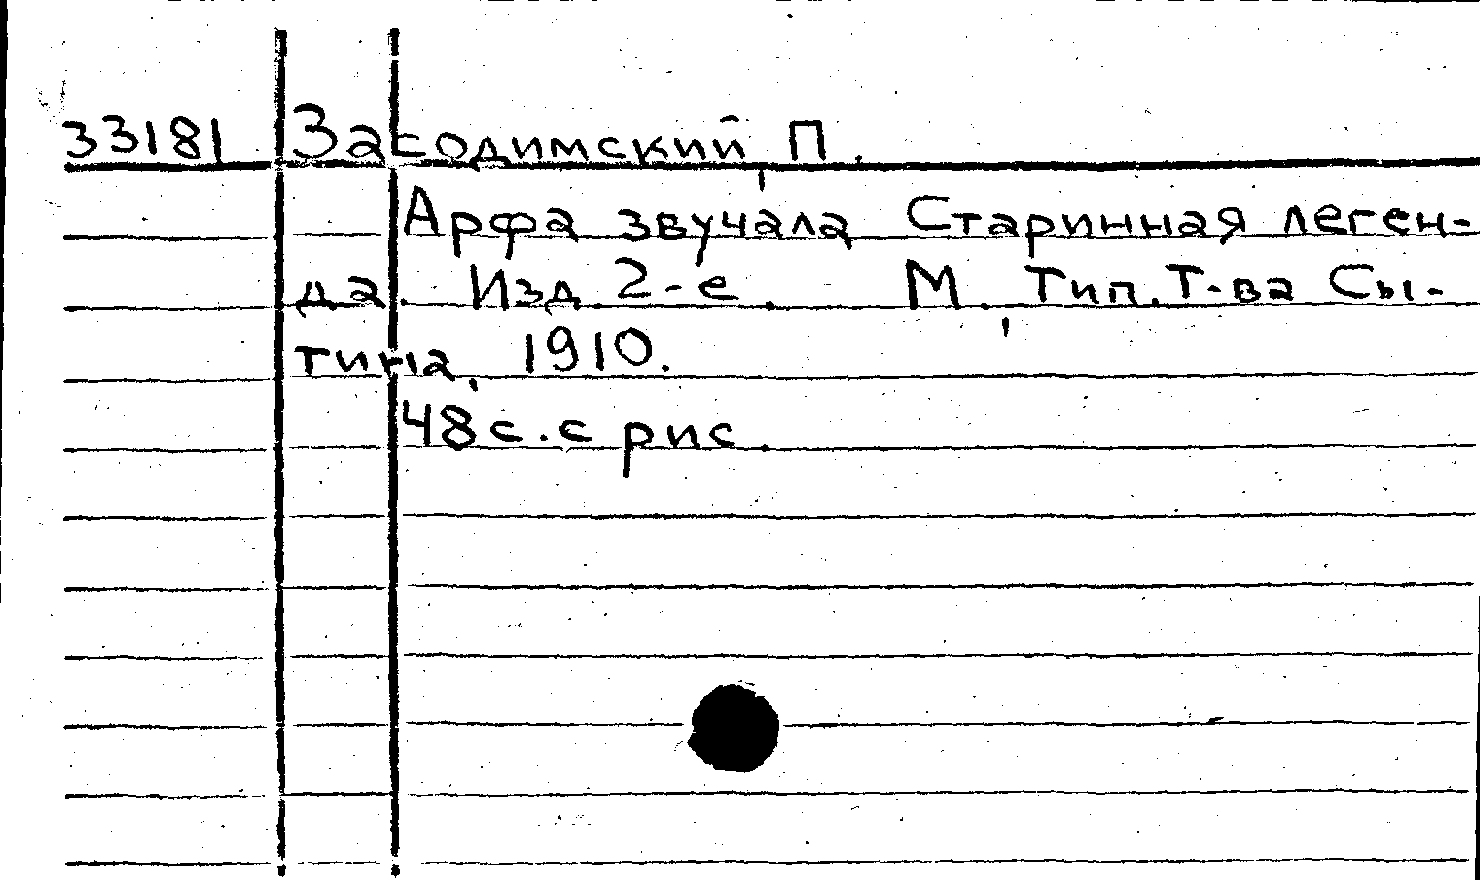 33181 Засодимский, П.
Арфа звучала Старинная леген-
да. Изд. 2-е. М., Тип. Т-ва Сы-
тина, 1910.
48 с. с рис.